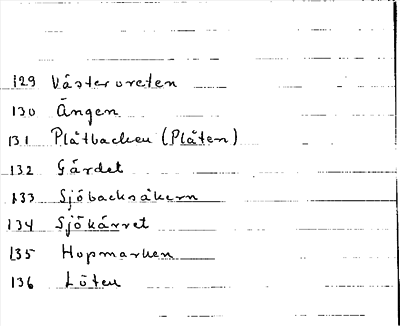 129 Västervreten
130 Ängen
131 Plåtbacken (Plåten)
132 Gärdet
133 Sjöbacksåkern
134 Sjökärret
135 Hopmarken
136 Löten